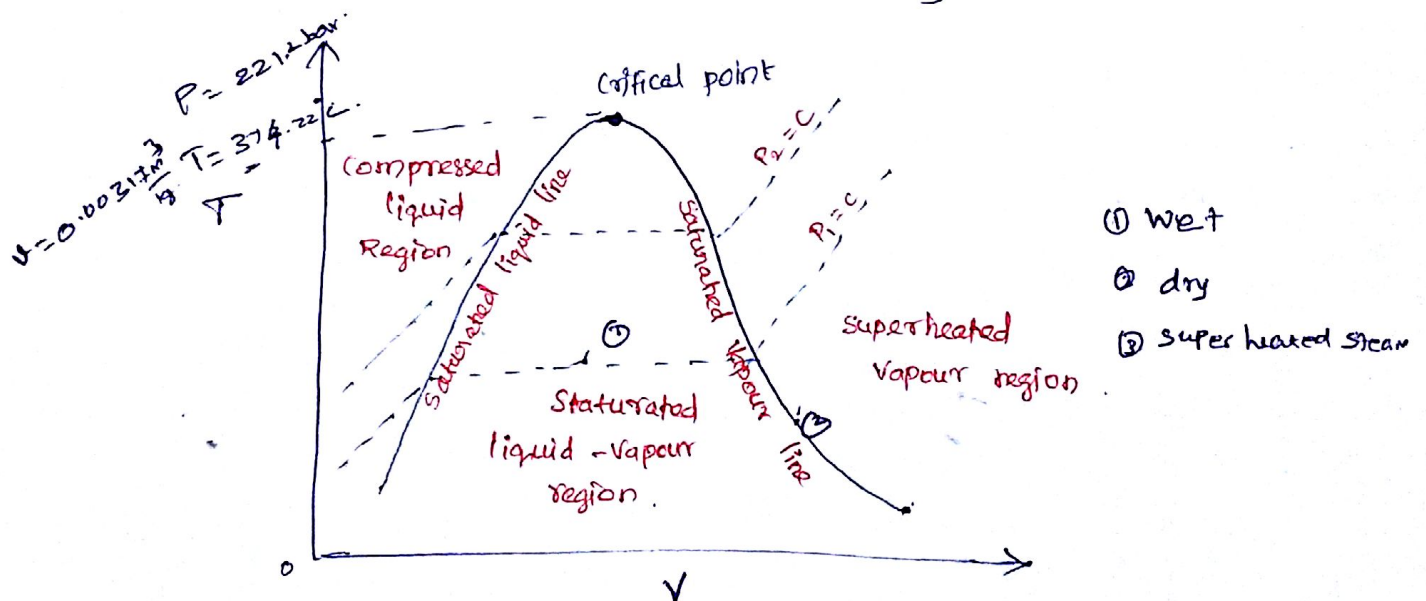 P = 221.2 bar.
T = 374.22°C.
v = 0.00317 m³/kg
T
Critical point
Compressed
liquid
Region
Saturated liquid line
Saturated vapour line
P₂ = C
P₁ = C
①
Staturated
liquid - vapour
region.
②
Superheated
vapour region.
① Wet
② dry
③ Super heated Steam
0
V